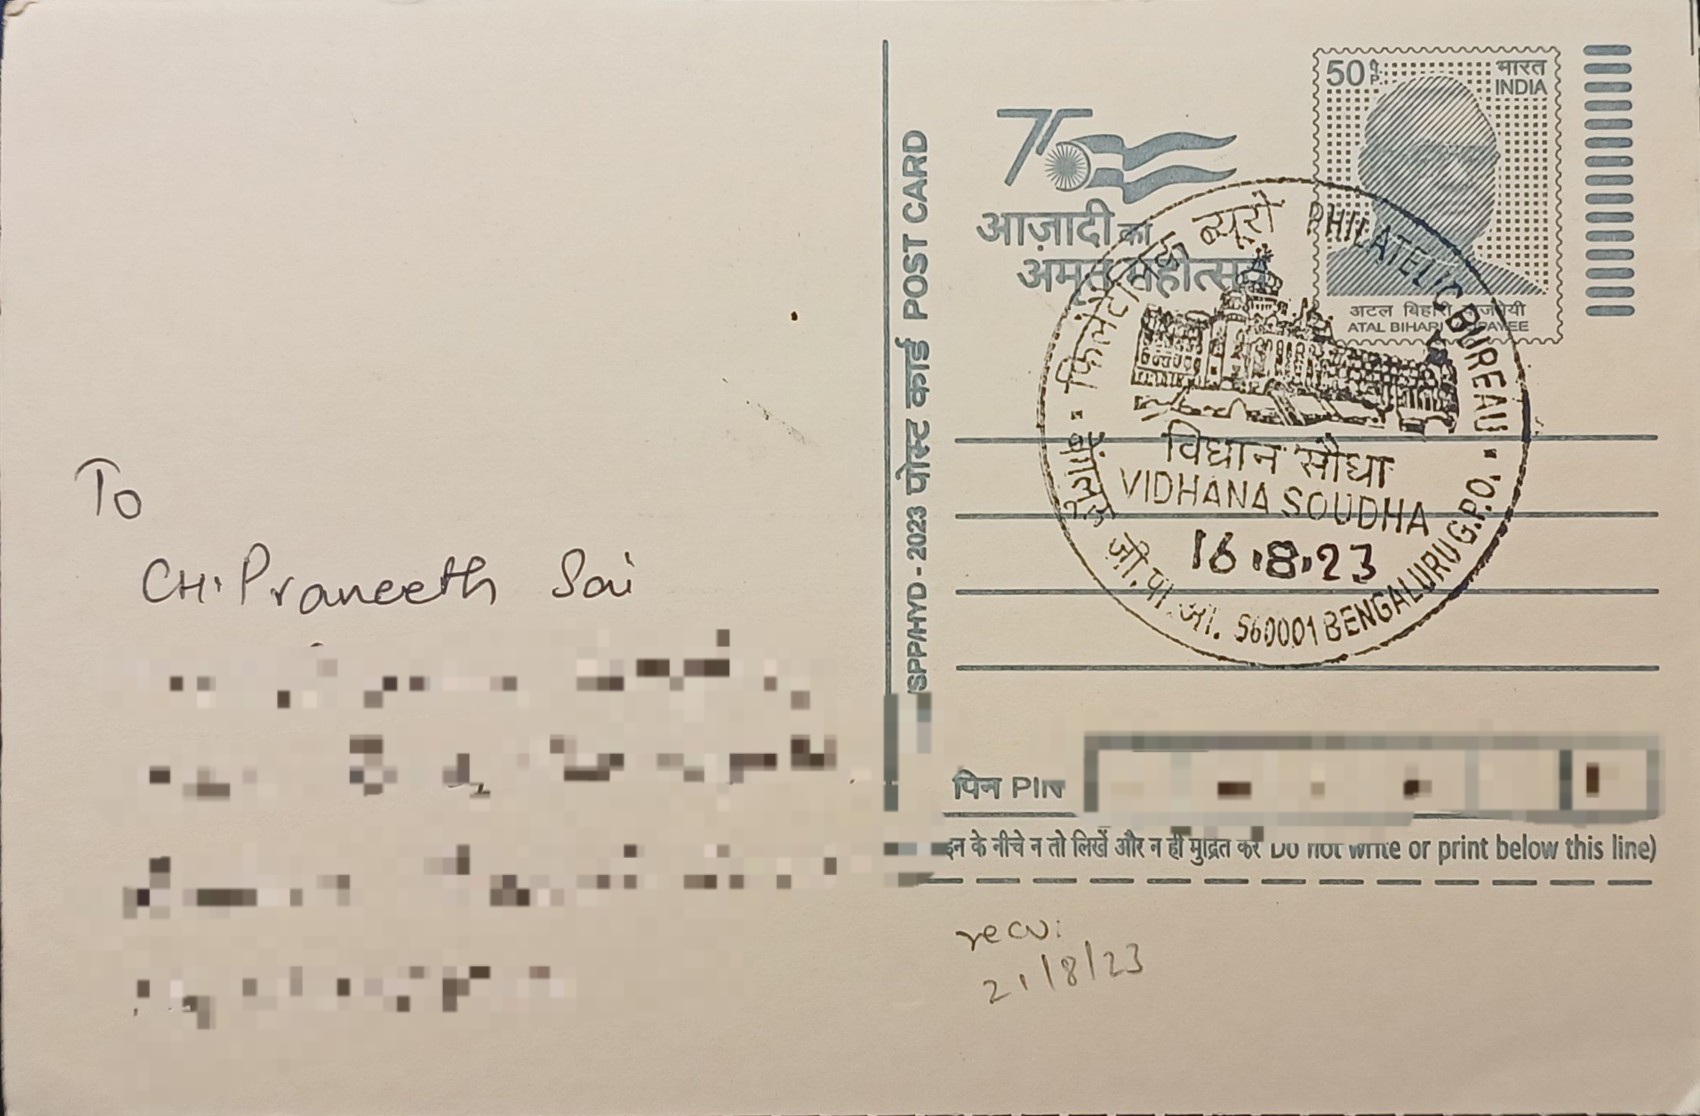 To
CH. Praneeth Sai
SPP/HYD - 2023 पोस्ट कार्ड POST CARD
75
आज़ादी का
अमृत महोत्सव
50 प. P.
भारत
INDIA
अटल बिहारी वाजपेयी
ATAL BIHARI VAJPAYEE
फिलेटलिक ब्यूरो PHILATELIC BUREAU
विधान सौधा
VIDHANA SOUDHA
16.8.23
बेंगलूरु जी.पी.ओ. 560001 BENGALURU G.P.O.
पिन PIN
के नीचे न तो लिखें और न ही मुद्रित करें Do not write or print below this line)
recv:
21/8/23